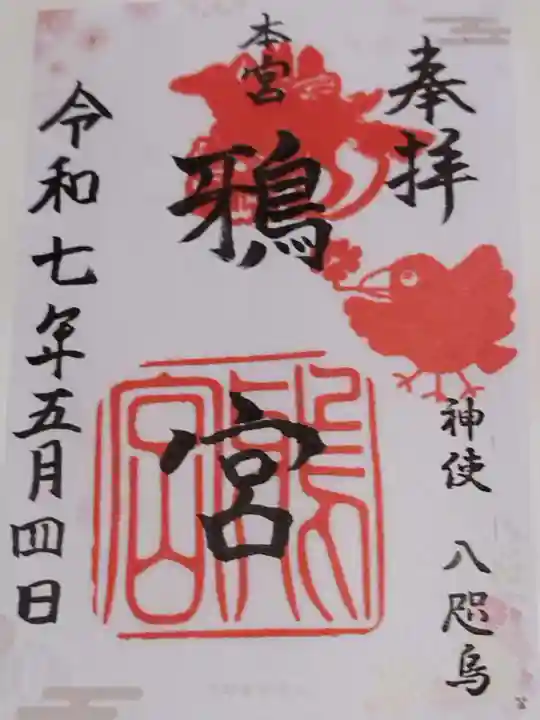 奉拝
神使 八咫烏
本宮
鴉宮
令和七年五月四日